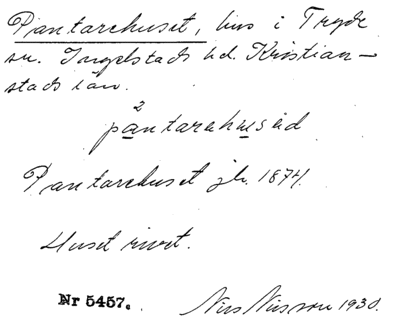 Pantarehuset, hus i Tryde
sn. Ingelstads hd. Kristian-
stads län.
2
pantarehusəd
Pantarehuset jb. 1874.
Huset rivet.
Nr 5457.
Nils Nilsson 1930.